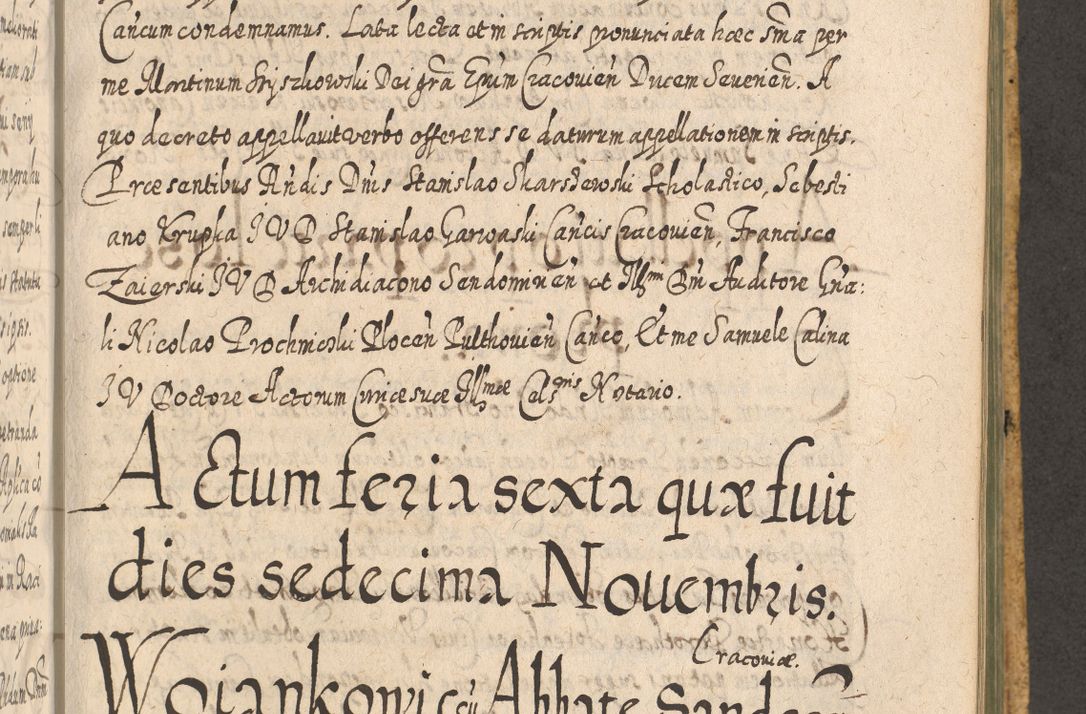 Cancum condemnamus. Lata lecta et in scriptis pronunciata hæc sm̃a per
me Martinum Szyszkowski Dei grã Epũm Cracovieñ Ducem Severieñ. A
quo decreto appellavit verbo offerens se daturum appellationem in scriptis.
Præsentibus Rñdis Dñis Stanislao Skarszewski Scholastico, Sebesti
ano Krupka I V D Stanislao Garwaski Cañcis Cracovieñ, Francisco
Zaierski I V D Archidiacono Sendomireñ et Illmi Dñi Auditore Gña:
li Nicolao Prochnicski Ploceñ Pulthovieñ Canco, Et me Samuele Calina
I V Doctore Actorum Curiæ suæ Illmæ Celsnis Notario.
ACtum feria sexta quæ fuit
dies sedecima Nouembris.
Cracoviæ.
Woiankowi cũ Abbate